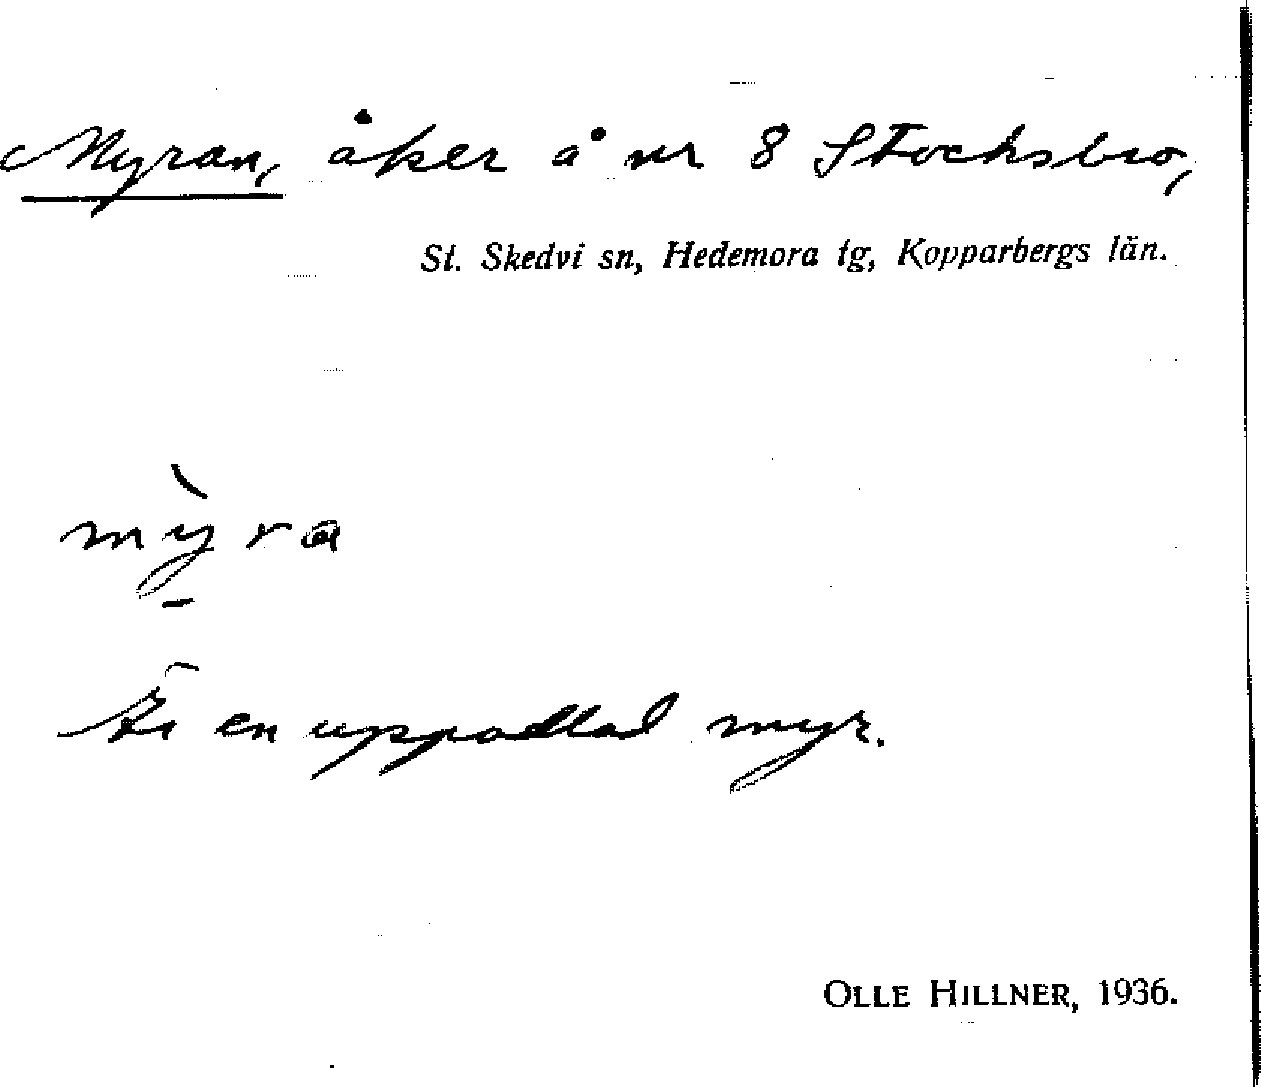 Myran, åker å nr 8 Stocksbro,
St. Skedvi sn, Hedemora tg, Kopparbergs län.
mỳra
Är en uppodlad myr.
OLLE HILLNER, 1936.